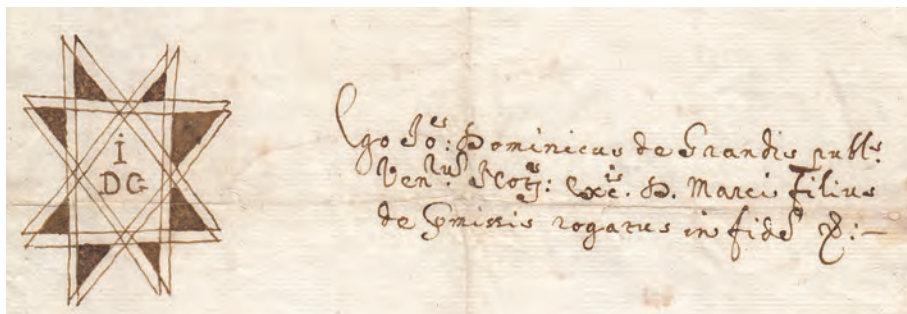 I
DG
Ego Jo:es Dominicus de Grandis publ.s
Ven.tus Not.s: Ex.is D. Marci Filius
de p̃missis rogatus in fidẽ